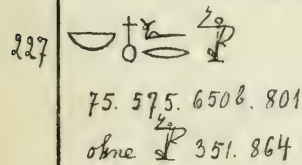 227 𓎟 𓄤 𓆑 𓂋
75. 575. 650b. 801
ohne 351. 864